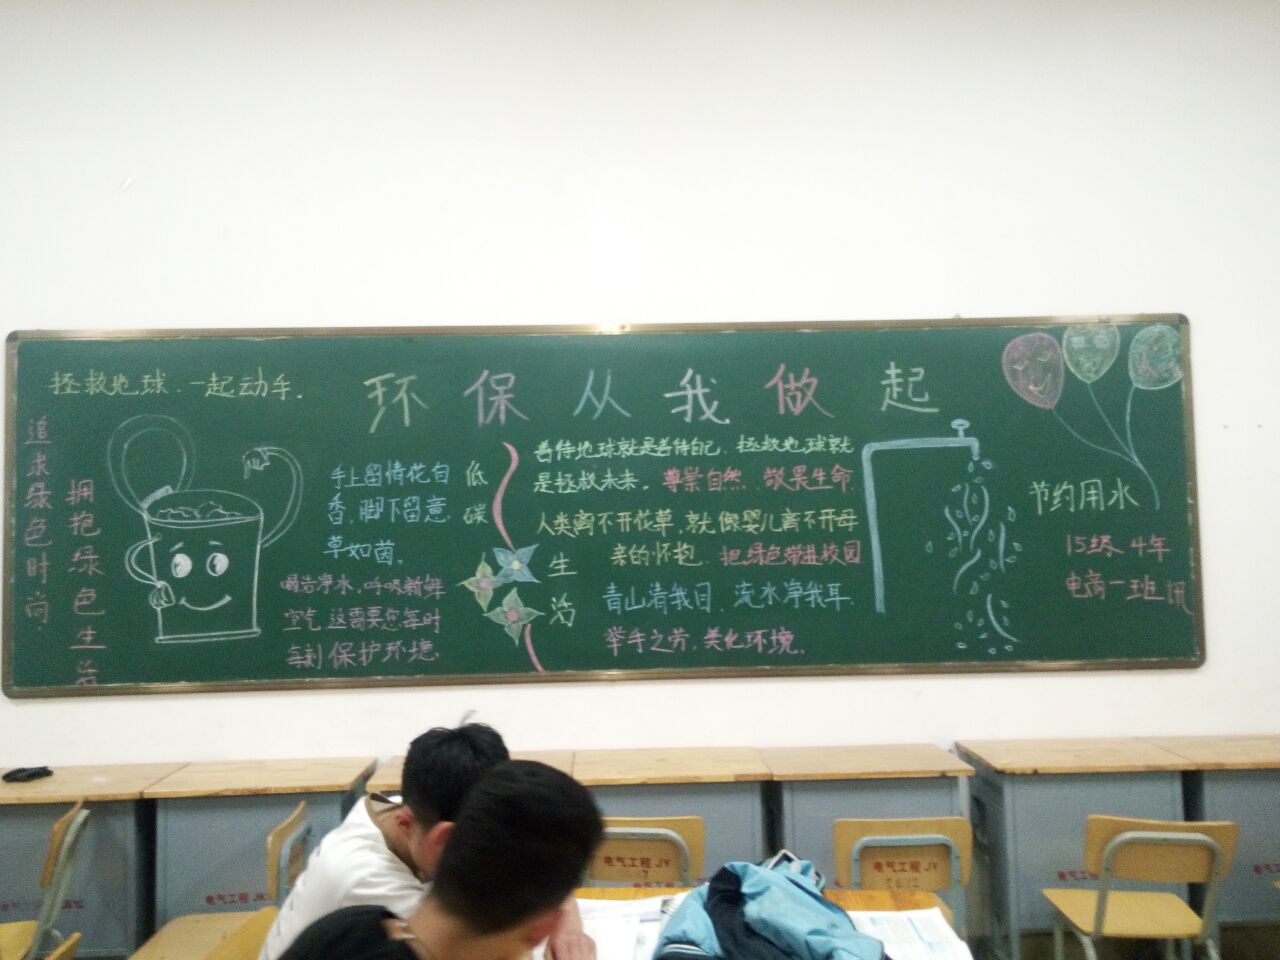 拯救地球.一起动手.
环保从我做起
追求绿色时尚.
拥抱绿色生活
手上留情花自
香,脚下留意
草如茵。
喝洁净水,呼吸新鲜
空气.这需要您每时
每刻保护环境.
低碳
生活
善待地球就是善待自己、拯救地球就
是拯救未来。尊崇自然、敬畏生命
人类离不开花草,就像婴儿离不开母
亲的怀抱、把绿色带进校园
青山清我目、流水净我耳.
举手之劳.美化环境.
节约用水
15级、4年
电商一班
电气工程 JY
7
电气工程 JY
电气工程 JK
电气工程